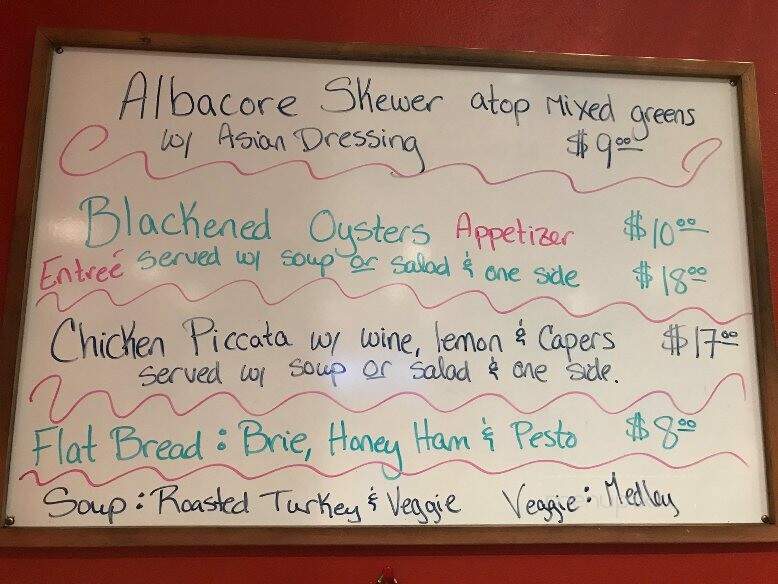 Albacore Skewer atop Mixed greens
w/ Asian Dressing $9.00
Blackened Oysters Appetizer $10.00
Entreé served w/ soup or salad & one side $18.00
Chicken Piccata w/ wine, lemon & Capers $17.00
served w/ soup or salad & one side.
Flat Bread: Brie, Honey Ham & Pesto $8.00
Soup: Roasted Turkey & Veggie Veggie: Medley